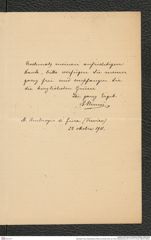 Nochmals meinen aufrichtigen
Dank, bitte verfügen Sie meiner
ganz frei und empfangen Sie
die herzlichsten Grüsse
Ihr ganz Ergeb.
S. Ambrogio di Fiera (Treviso)
28 Oktober 1911.